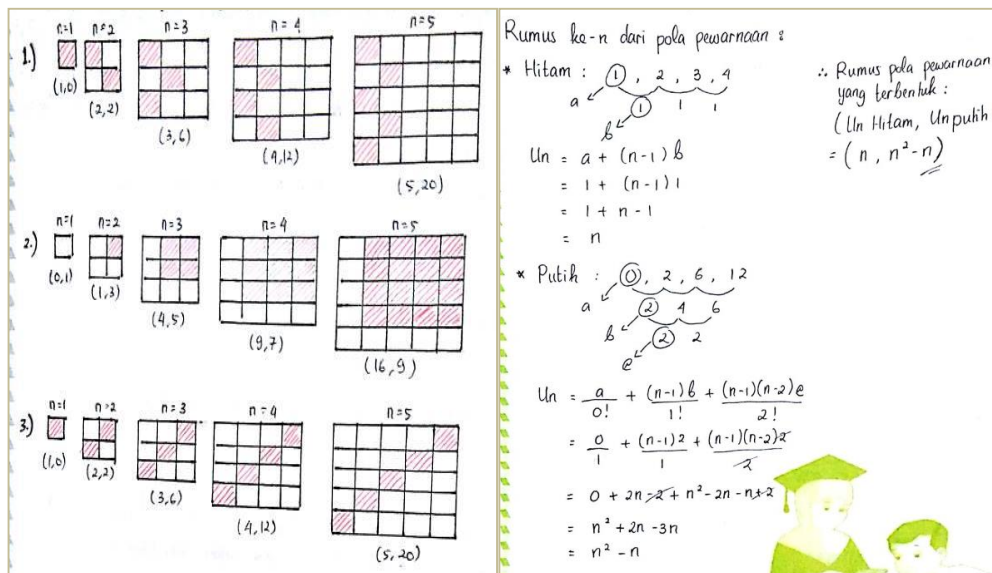 1.)
n=1 n=2 n=3 n=4 n=5
(1,0) (2,2) (3,6) (4,12) (5,20)
2.)
n=1 n=2 n=3 n=4 n=5
(0,1) (1,3) (4,5) (9,7) (16,9)
3.)
n=1 n=2 n=3 n=4 n=5
(1,0) (2,2) (3,6) (4,12) (5,20)
Rumus ke-n dari pola pewarnaan :
* Hitam : 1, 2, 3, 4
a
1 1 1
b
Un = a + (n-1) b
= 1 + (n-1) 1
= 1 + n - 1
= n
* Putih : 0, 2, 6, 12
a
2 4 6
b
2 2
c
Un = a/0! + (n-1)b/1! + (n-1)(n-2)c/2!
= 0/1 + (n-1)2/1 + (n-1)(n-2)2/2
= 0 + 2n - 2 + n² - 2n - n + 2
= n² + 2n - 3n
= n² - n
∴ Rumus pola pewarnaan
yang terbentuk :
(Un Hitam, Un putih
= (n, n² - n)